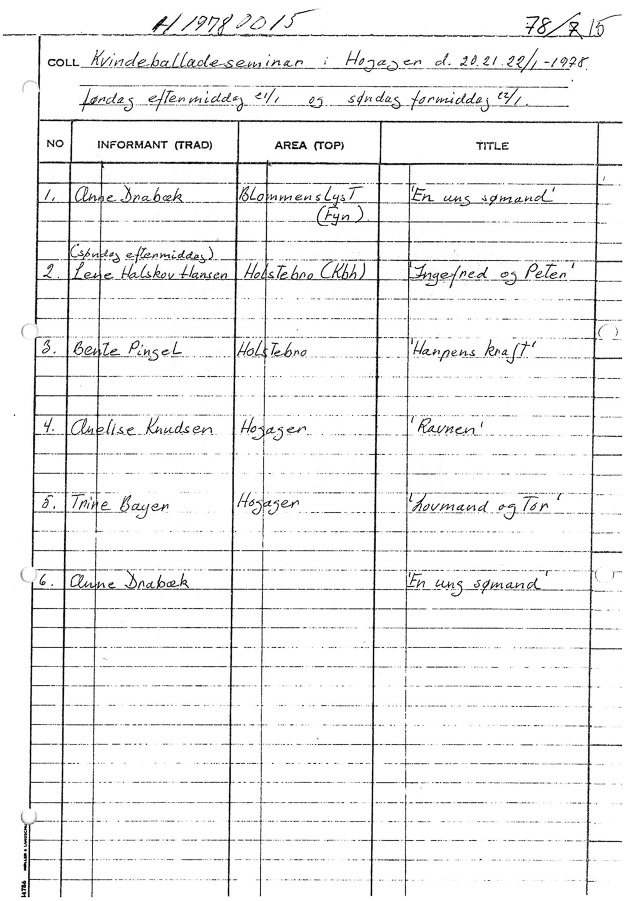 H 1978 00 15
78/7 15
COLL Kvindeballadeseminar i Hogager d. 20.21.22/1-1978.
lørdag eftermiddag 21/1 og søndag formiddag 22/1.
NO INFORMANT (TRAD) AREA (TOP) TITLE
1. Anne Drabæk Blommenslyst 'En ung sømand'
(Fyn)
(søndag eftermiddag)
2. Lene Halskov Hansen Holstebro (Kbh) 'Ingefred og Peter'
3. Bente Pingel Holstebro 'Harpens kraft'
4. Anelise Knudsen Hogager 'Ravnen'
5. Trine Bayer Hogager 'Lovmand og Tor'
6. Anne Drabæk 'En ung sømand'
14786 MØLLER & LANDSCHU